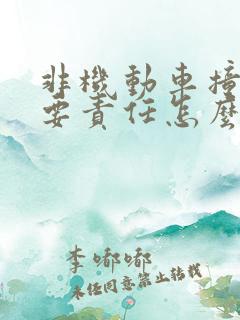 非機動車撞
要責任怎麼
李嘟嘟
未任同意禁止转载